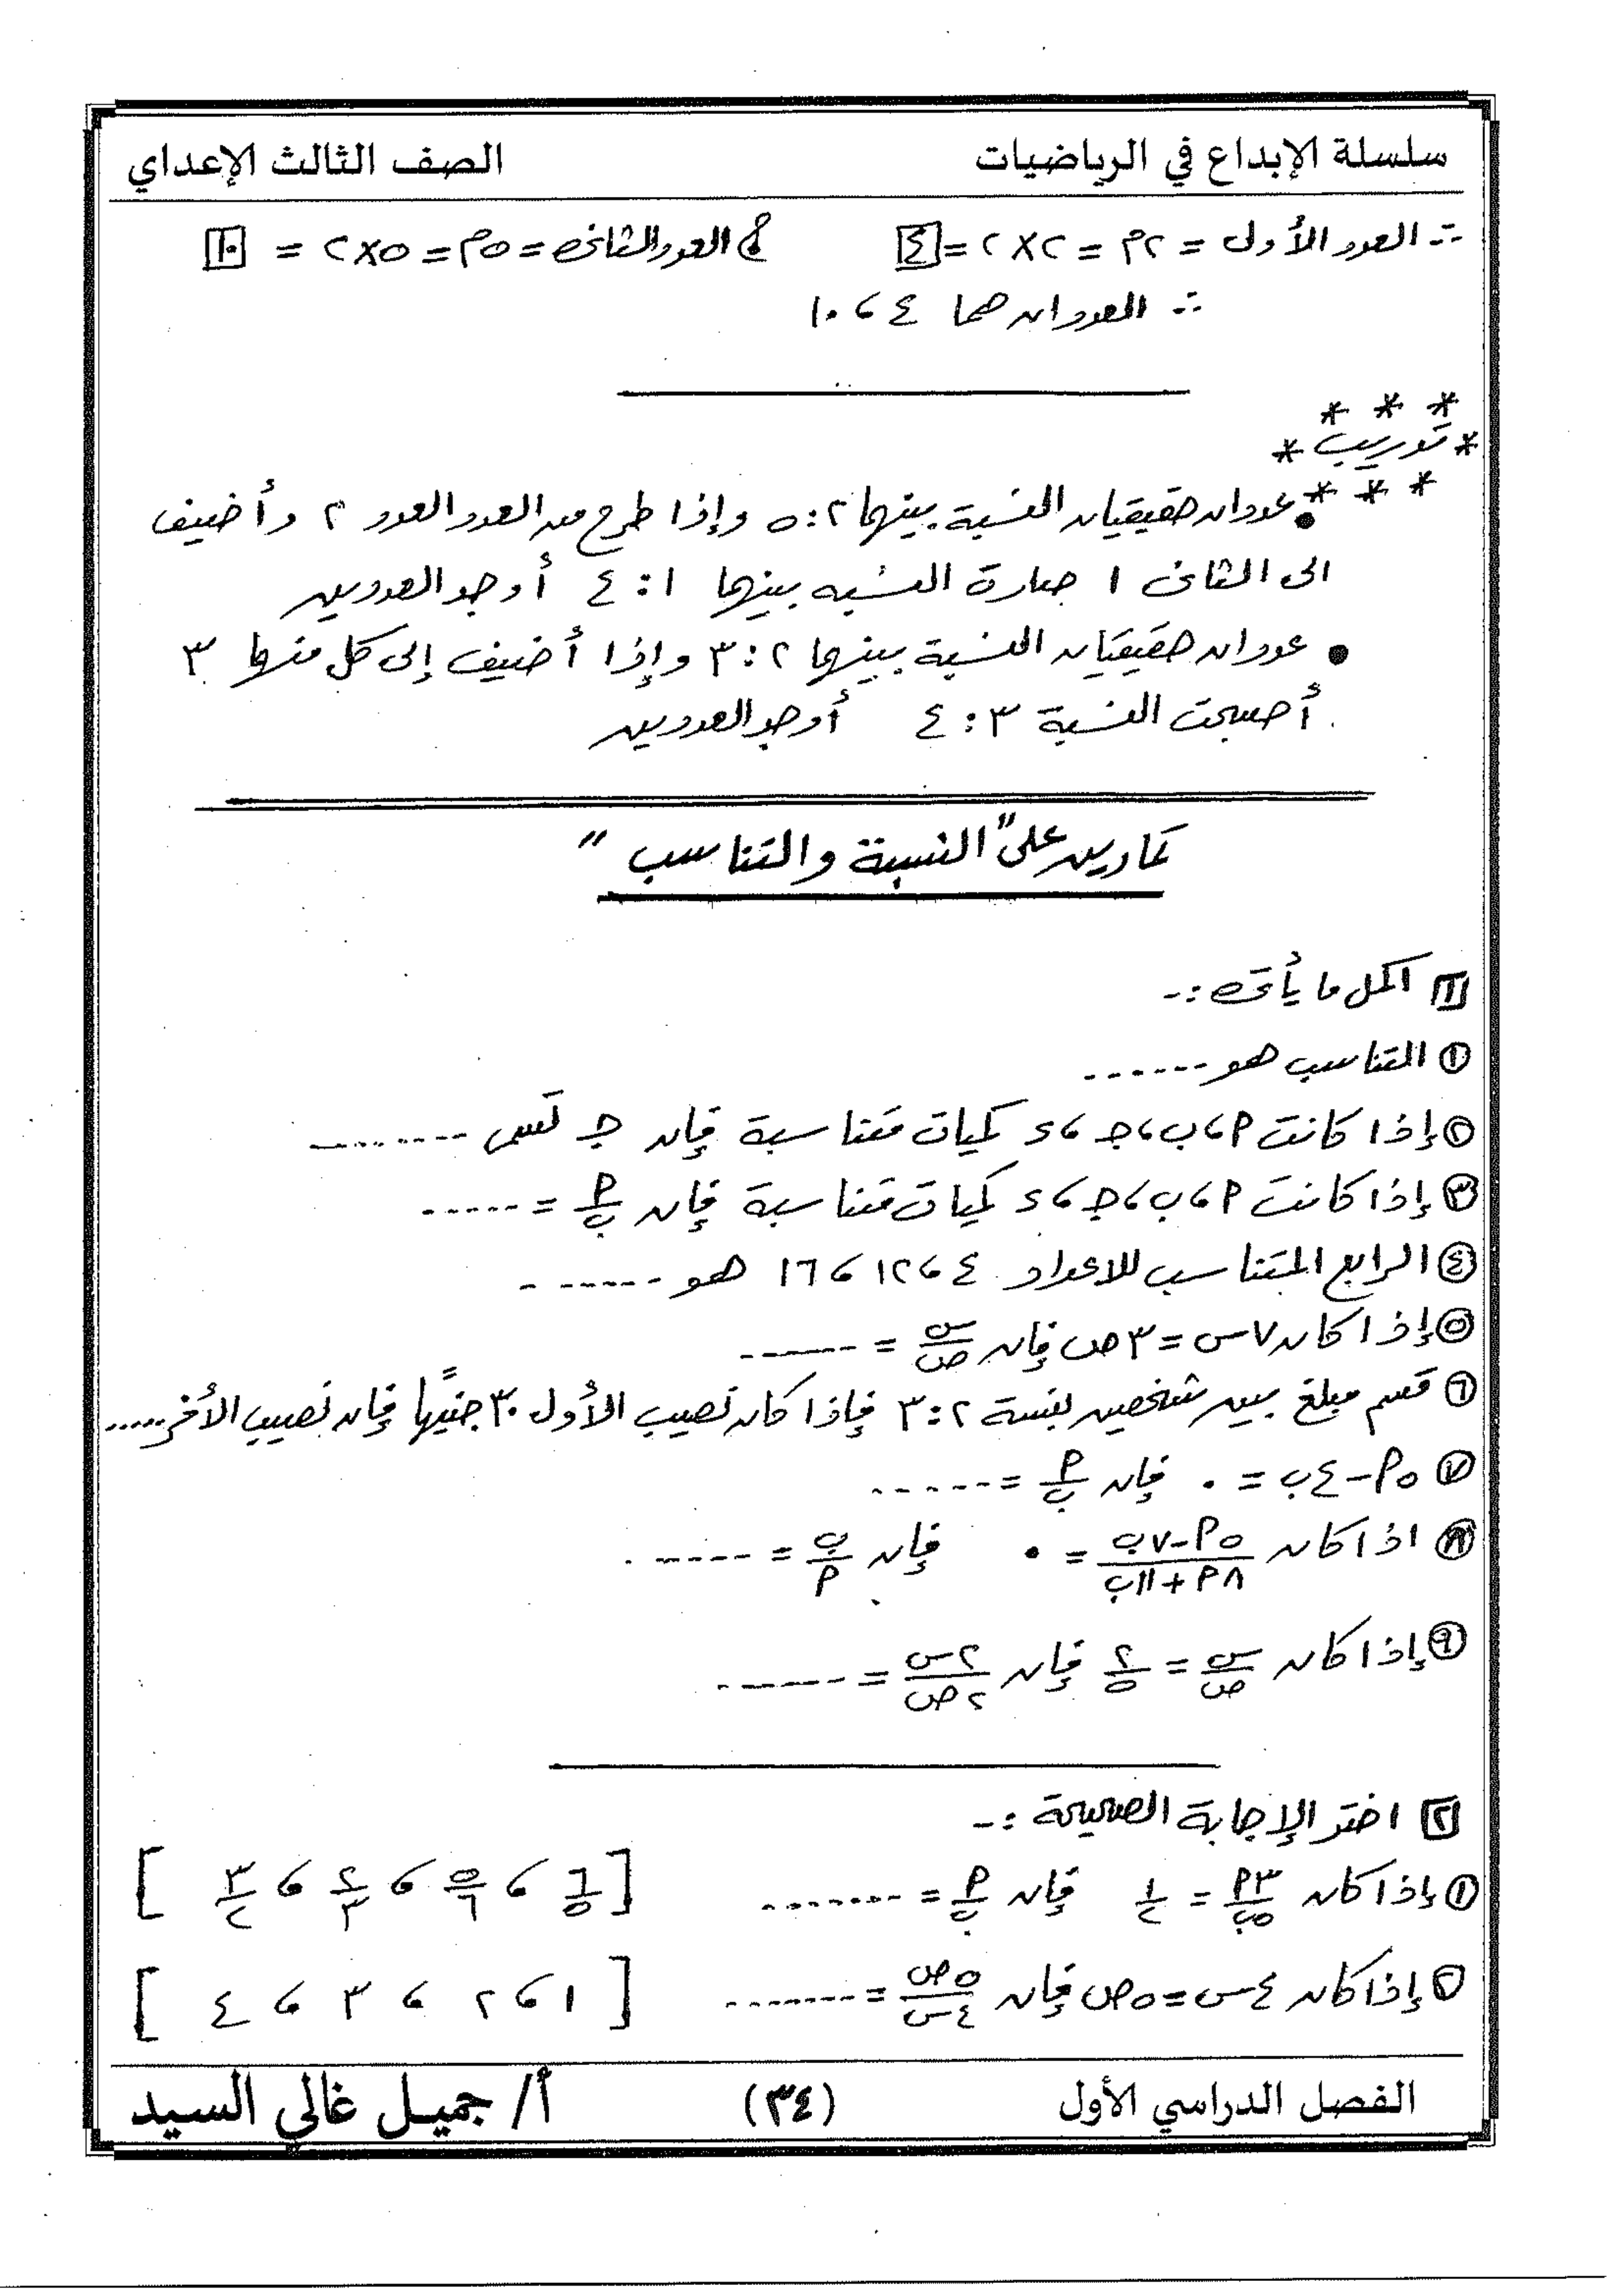 سلسلة الإبداع في الرياضيات الصف الثالث الإعداي
∴ العدد الأول = ٢م = ٢×٢ = ٤ ، العدد الثانى = ٥م = ٥×٢ = ١٠
∴ العددان هما ٤ ، ١٠
* * *
* تدريب *
* * *
• عددان حقيقيان النسبة بينهما ٢ : ٥ وإذا طرح من العدد العدد ٢ وأضيف
الى الثانى ١ صارة النسبه بينهما ١ : ٤ أوجد العددين
• عددان حقيقيان النسبة بينهما ٢ : ٣ وإذا أضيف إلى كل منهما ٣
أصبحت النسبة ٣ : ٤ أوجد العددين
تمارين على " النسبة والتناسب "
١ اكمل ما يأتى :-
① التناسب هو ------
② إذا كانت ٩ ، ب ، جـ ، ء كميات متناسبة فإن جـ تسمى --------
③ إذا كانت ٩ ، ب ، جـ ، ء كميات متناسبة فإن ٩/ب = -----
④ الرابع المتناسب للاعداد ٤ ، ١٢ ، ١٦ هو ------
⑤ إذا كان ٧س = ٣ص فإن س/ص = ------
⑥ قسم مبلغ بين شخصين بنسبة ٢ : ٣ فإذا كان نصيب الأول ٣٠ جنيهًا فإن نصيب الأخر .....
⑦ ٥٩ - ٤ب = ٠ فإن ٩/ب = ------
⑧ اذا كان (٥٩ - ٧ب)/(٨٩ + ١١ب) = ٠ فإن ب/٩ = ------
⑨ إذا كان س/ص = ٢/٥ فإن ٢س/٢ص = ------
٢ اختر الإجابة الصحيحة :-
① إذا كان ٣٩/٥ب = ١/٢ فإن ٩/ب = -------- [ ٦/٥ ، ٥/٦ ، ٢/٣ ، ٣/٢ ]
② إذا كان ٤س = ٥ص فإن ٥ص/٤س = -------- [ ١ ، ٢ ، ٣ ، ٤ ]
الفصل الدراسي الأول (٣٤) أ/ جميل غالى السيد